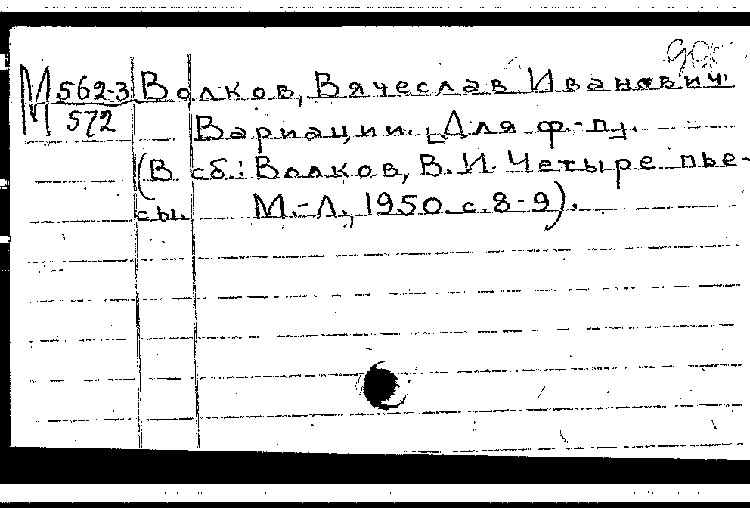 М 562-3 Волков, Вячеслав Иванович
572 Вариации. [Для ф.-п].
(В сб.: Волков, В. И. Четыре пье-
сы. М.-Л., 1950. с. 8-9).